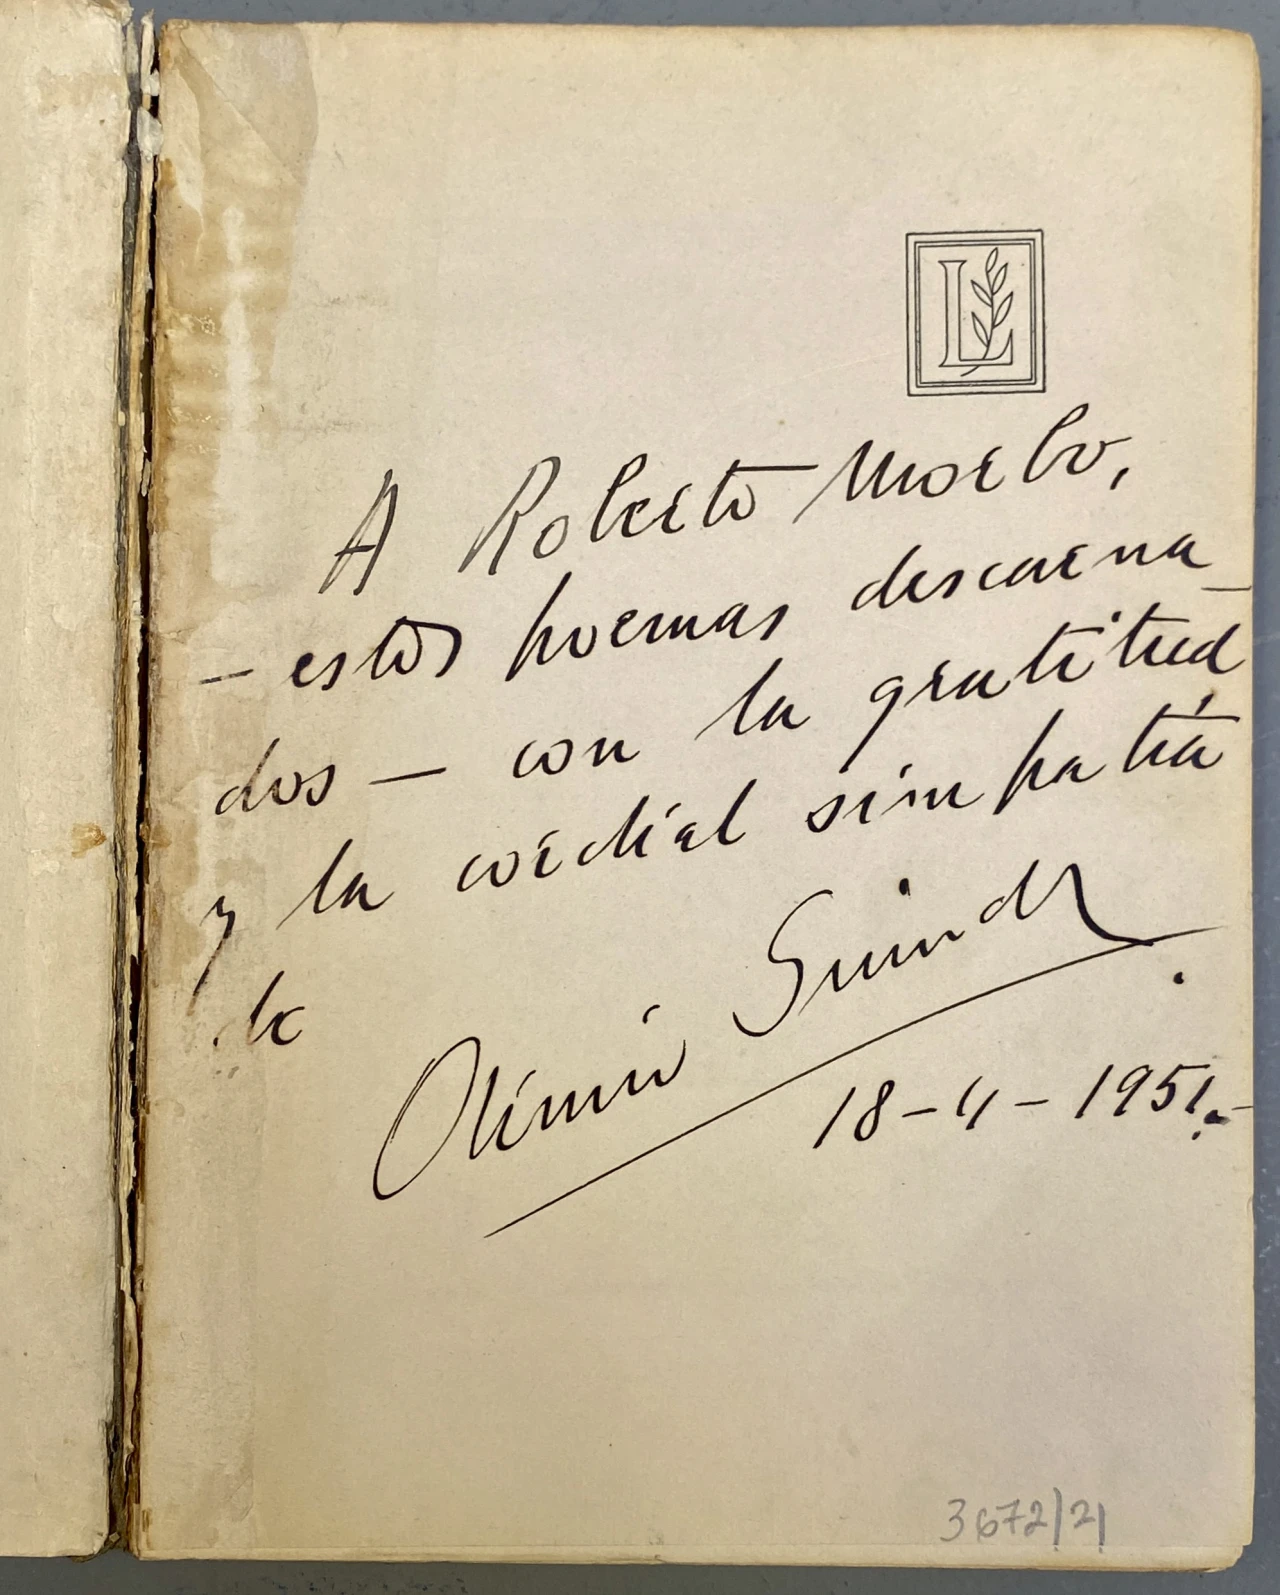 L
A Roberto Morbo,
— estos poemas descarna_
dos — con la gratitud
y la cordial simpatía
de
Olimpio Guindz
18-4-1951.-
3672/21